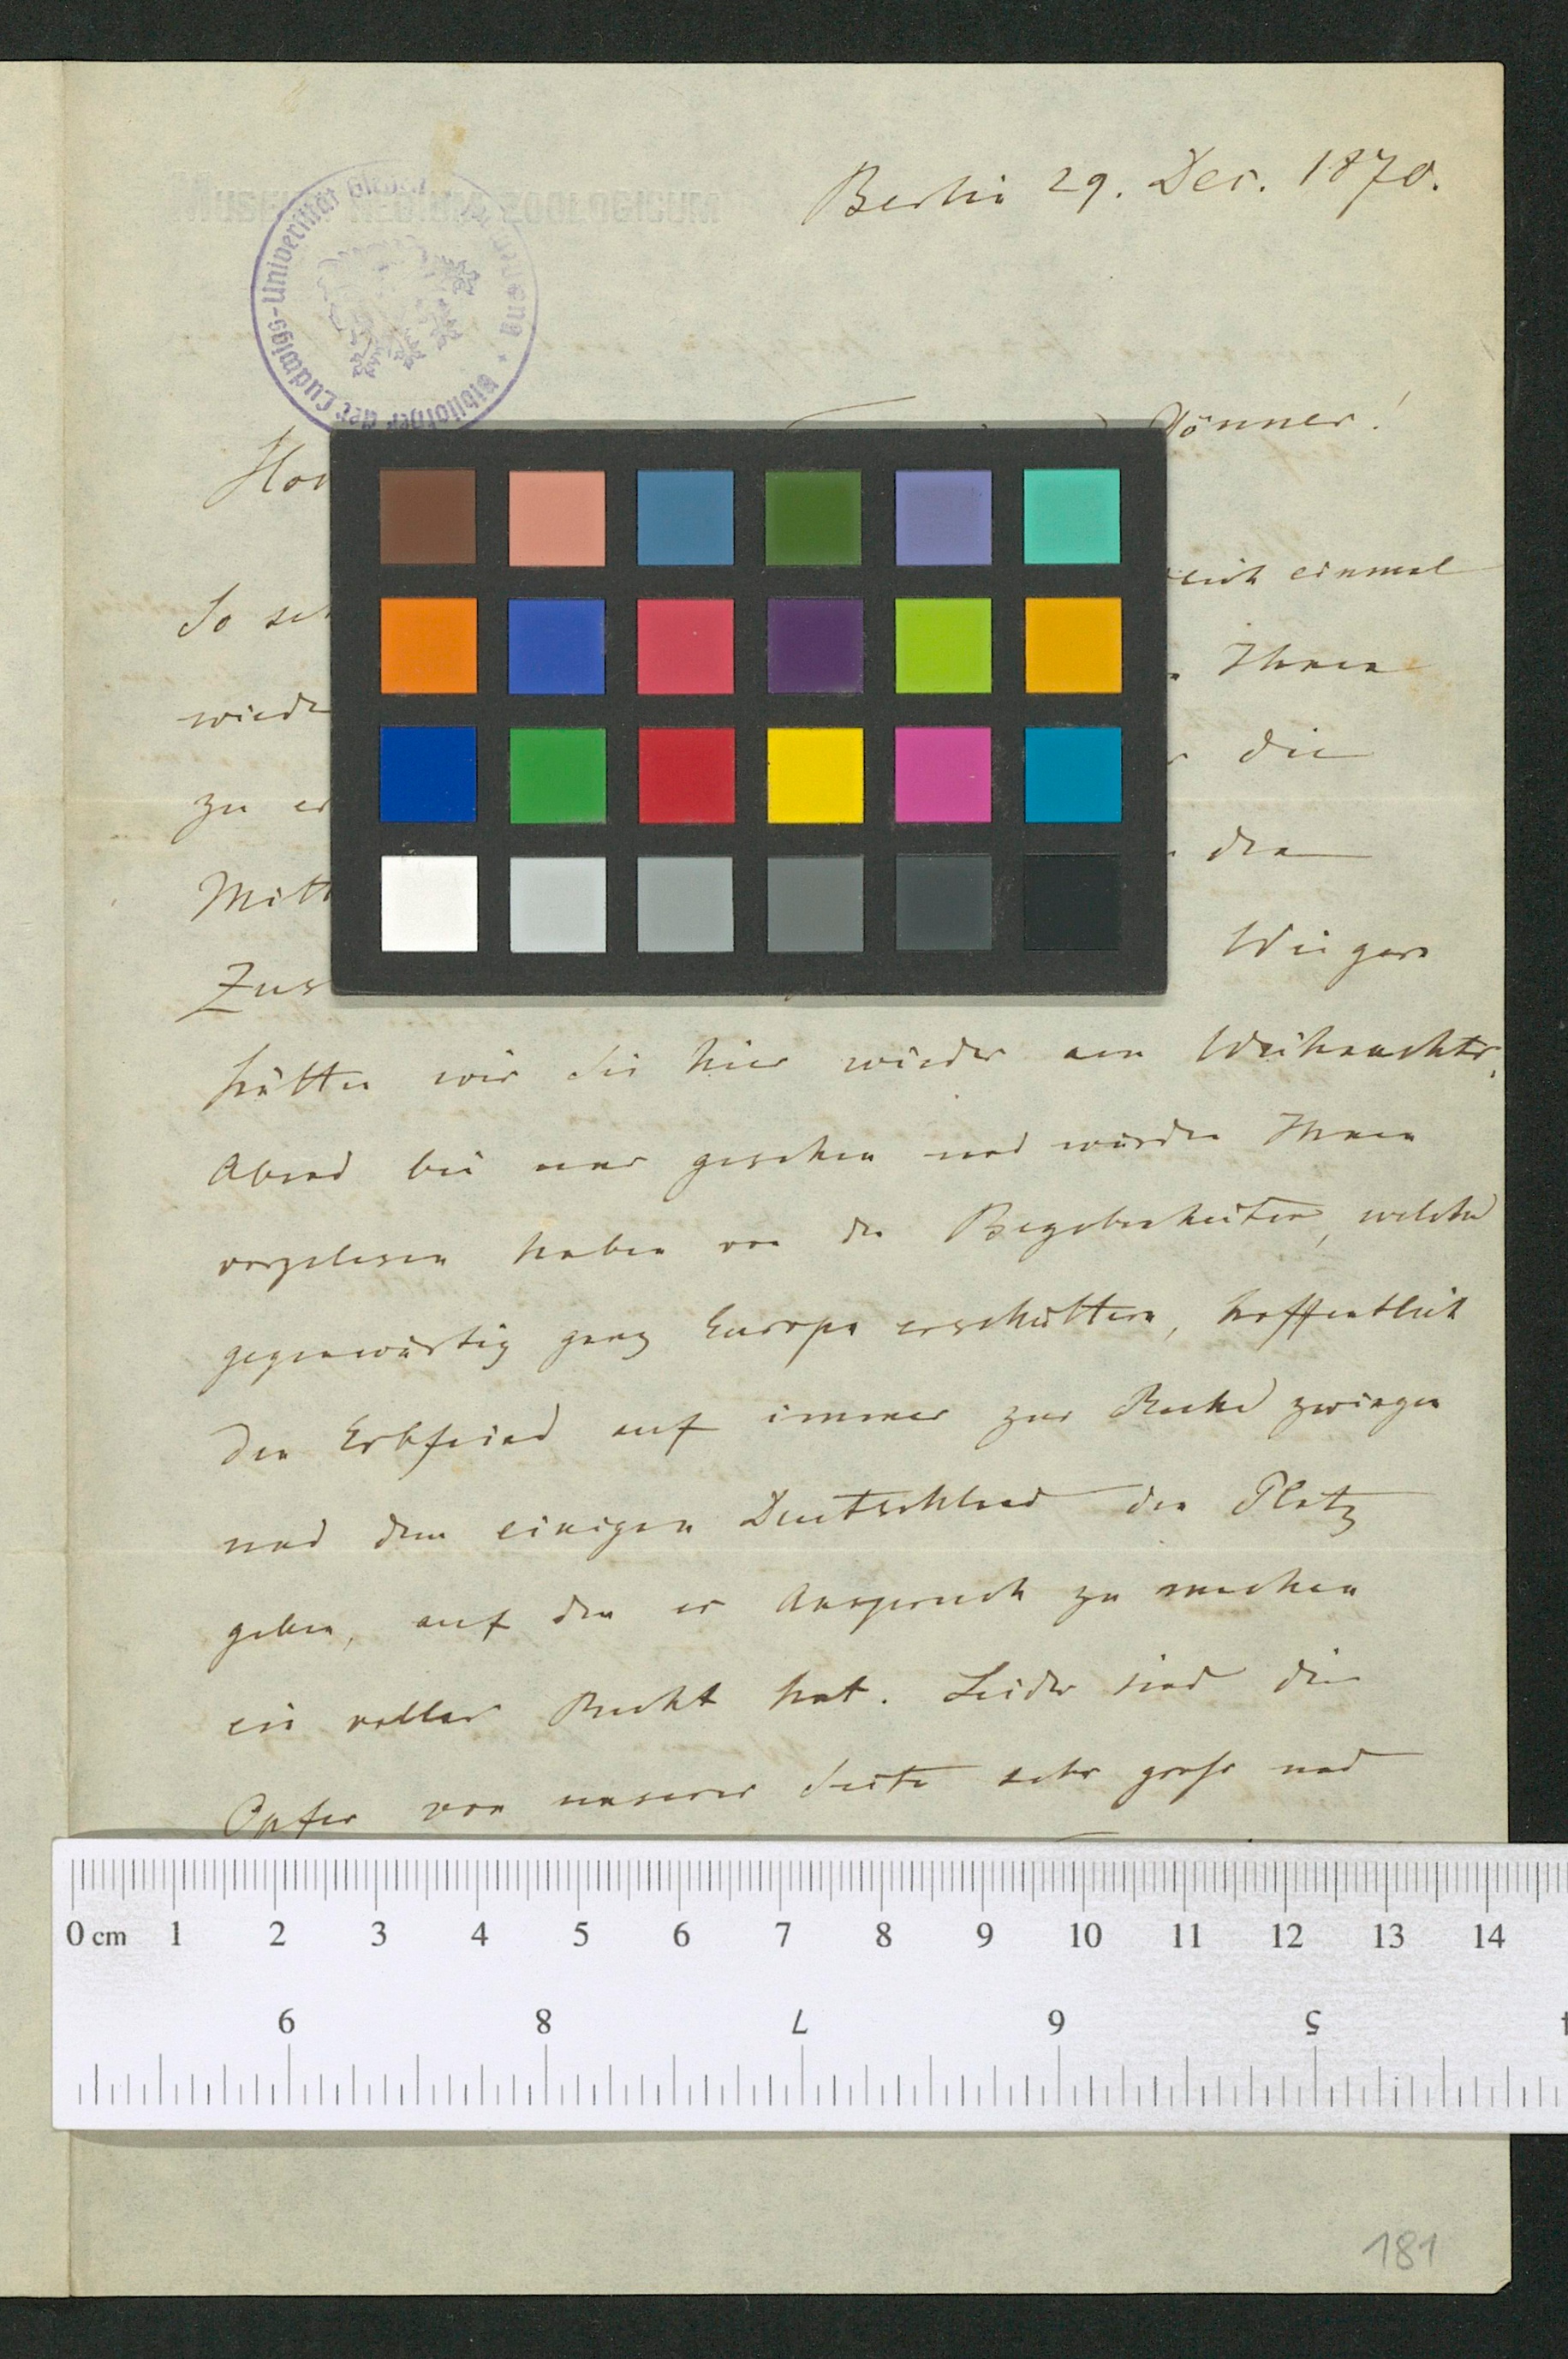 Berlin 29. Dec. 1870.
Bibliothek der Ludwigs-Universität Gießen
Gönner!
So
einmal
wied
Ihnen
zu er
die
Mitt
den
Zus
Weigern
hätten wir Sie hier wieder am Weihnachts-
Abend bei uns gesehen und würden Ihnen
vorgelesen haben von den Begebenheiten, welche
gegenwärtig ganz Europa erschüttern, hoffentlich
den Erbfeind auf immer zur Ruhe zwingen
und dem einigen Deutschland den Platz
geben, auf den er Anspruch zu machen
ein volles Recht hat. Leider sind die
Opfer von unserer Seite sehr groß und
0 cm 1 2 3 4 5 6 7 8 9 10 11 12 13 14
9 8 7 6 5
181